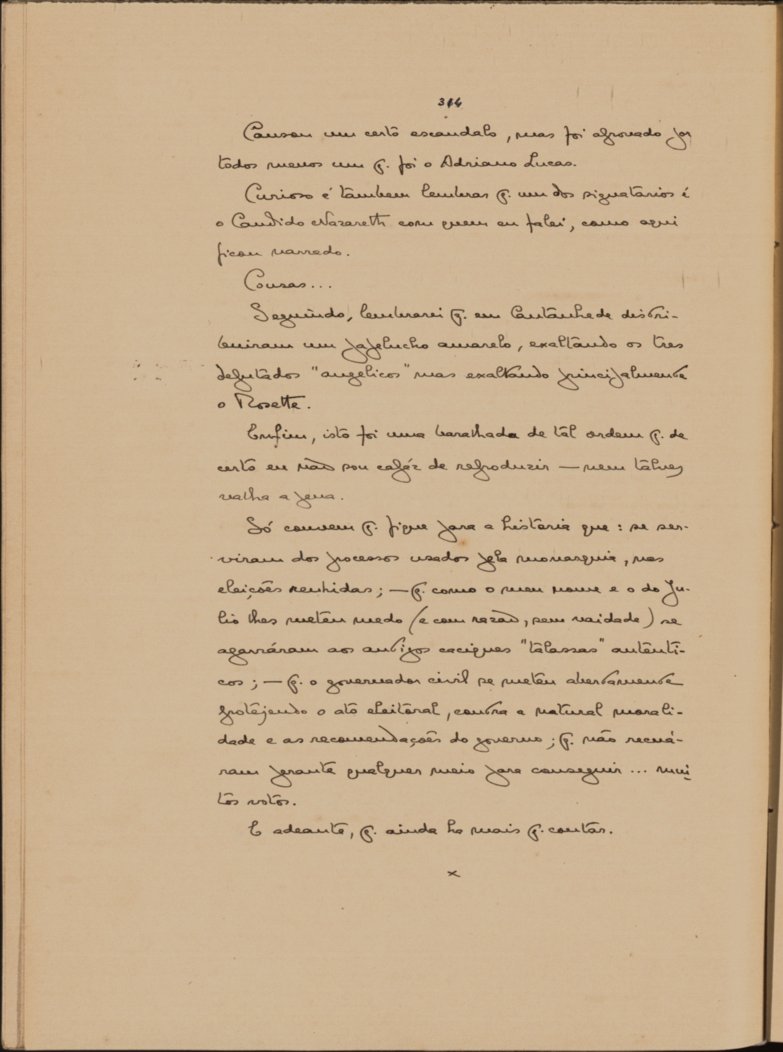 314
Causou um certo escandalo, mas foi aprovado por
todos menos um q. foi o Adriano Lucas.
Curioso é tambem lembrar q. um dos signatarios é
o Candido Nazareth com quem eu falei, como aqui
ficou narrado.
Cousas...
Segundo, lembrarei q. em Cantanhede distri-
buiram um papelucho amarelo, exaltando os tres
deputados "angelicos" mas exaltando principalmente
o Rosette.
Emfim, isto foi uma baralhada de tal ordem q. de
certo eu não sou capaz de reproduzir — nem talvez
valha a pena.
Só convem q. fique para a historia que: se ser-
viram dos processos usados pela monarquia, nas
eleições renhidas; — q. como o meu nome e o do Ju-
lio lhes meteu medo (e com razão, sem vaidade) se
agarráram aos antigos caciques "talassas" autenti-
cos; — q. o governador civil se meteu abertamente
protejendo o ato eleitoral, contra a natural morali-
dade e as recomendações do governo; q. não recuá-
ram perante qualquer meio para conseguir... mui-
tos votos.
E adeante, q. ainda ha mais q. contar.
x